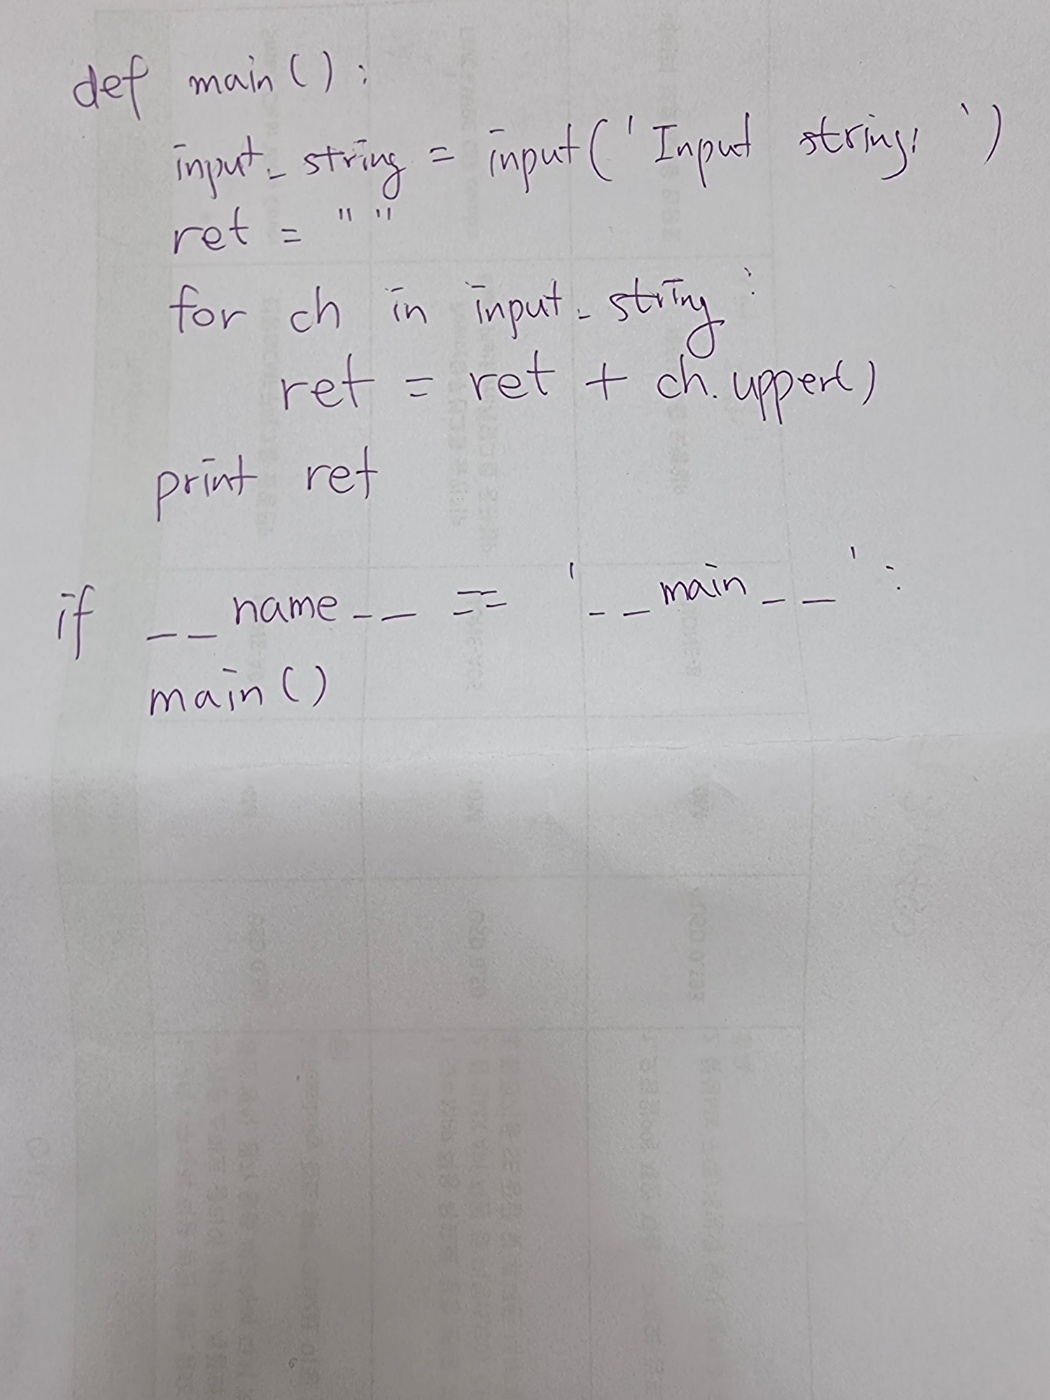 def main():
input_string = input('Input string: ')
ret = ""
for ch in input_string:
ret = ret + ch.upper()
print ret
if __name__ == '__main__':
main()